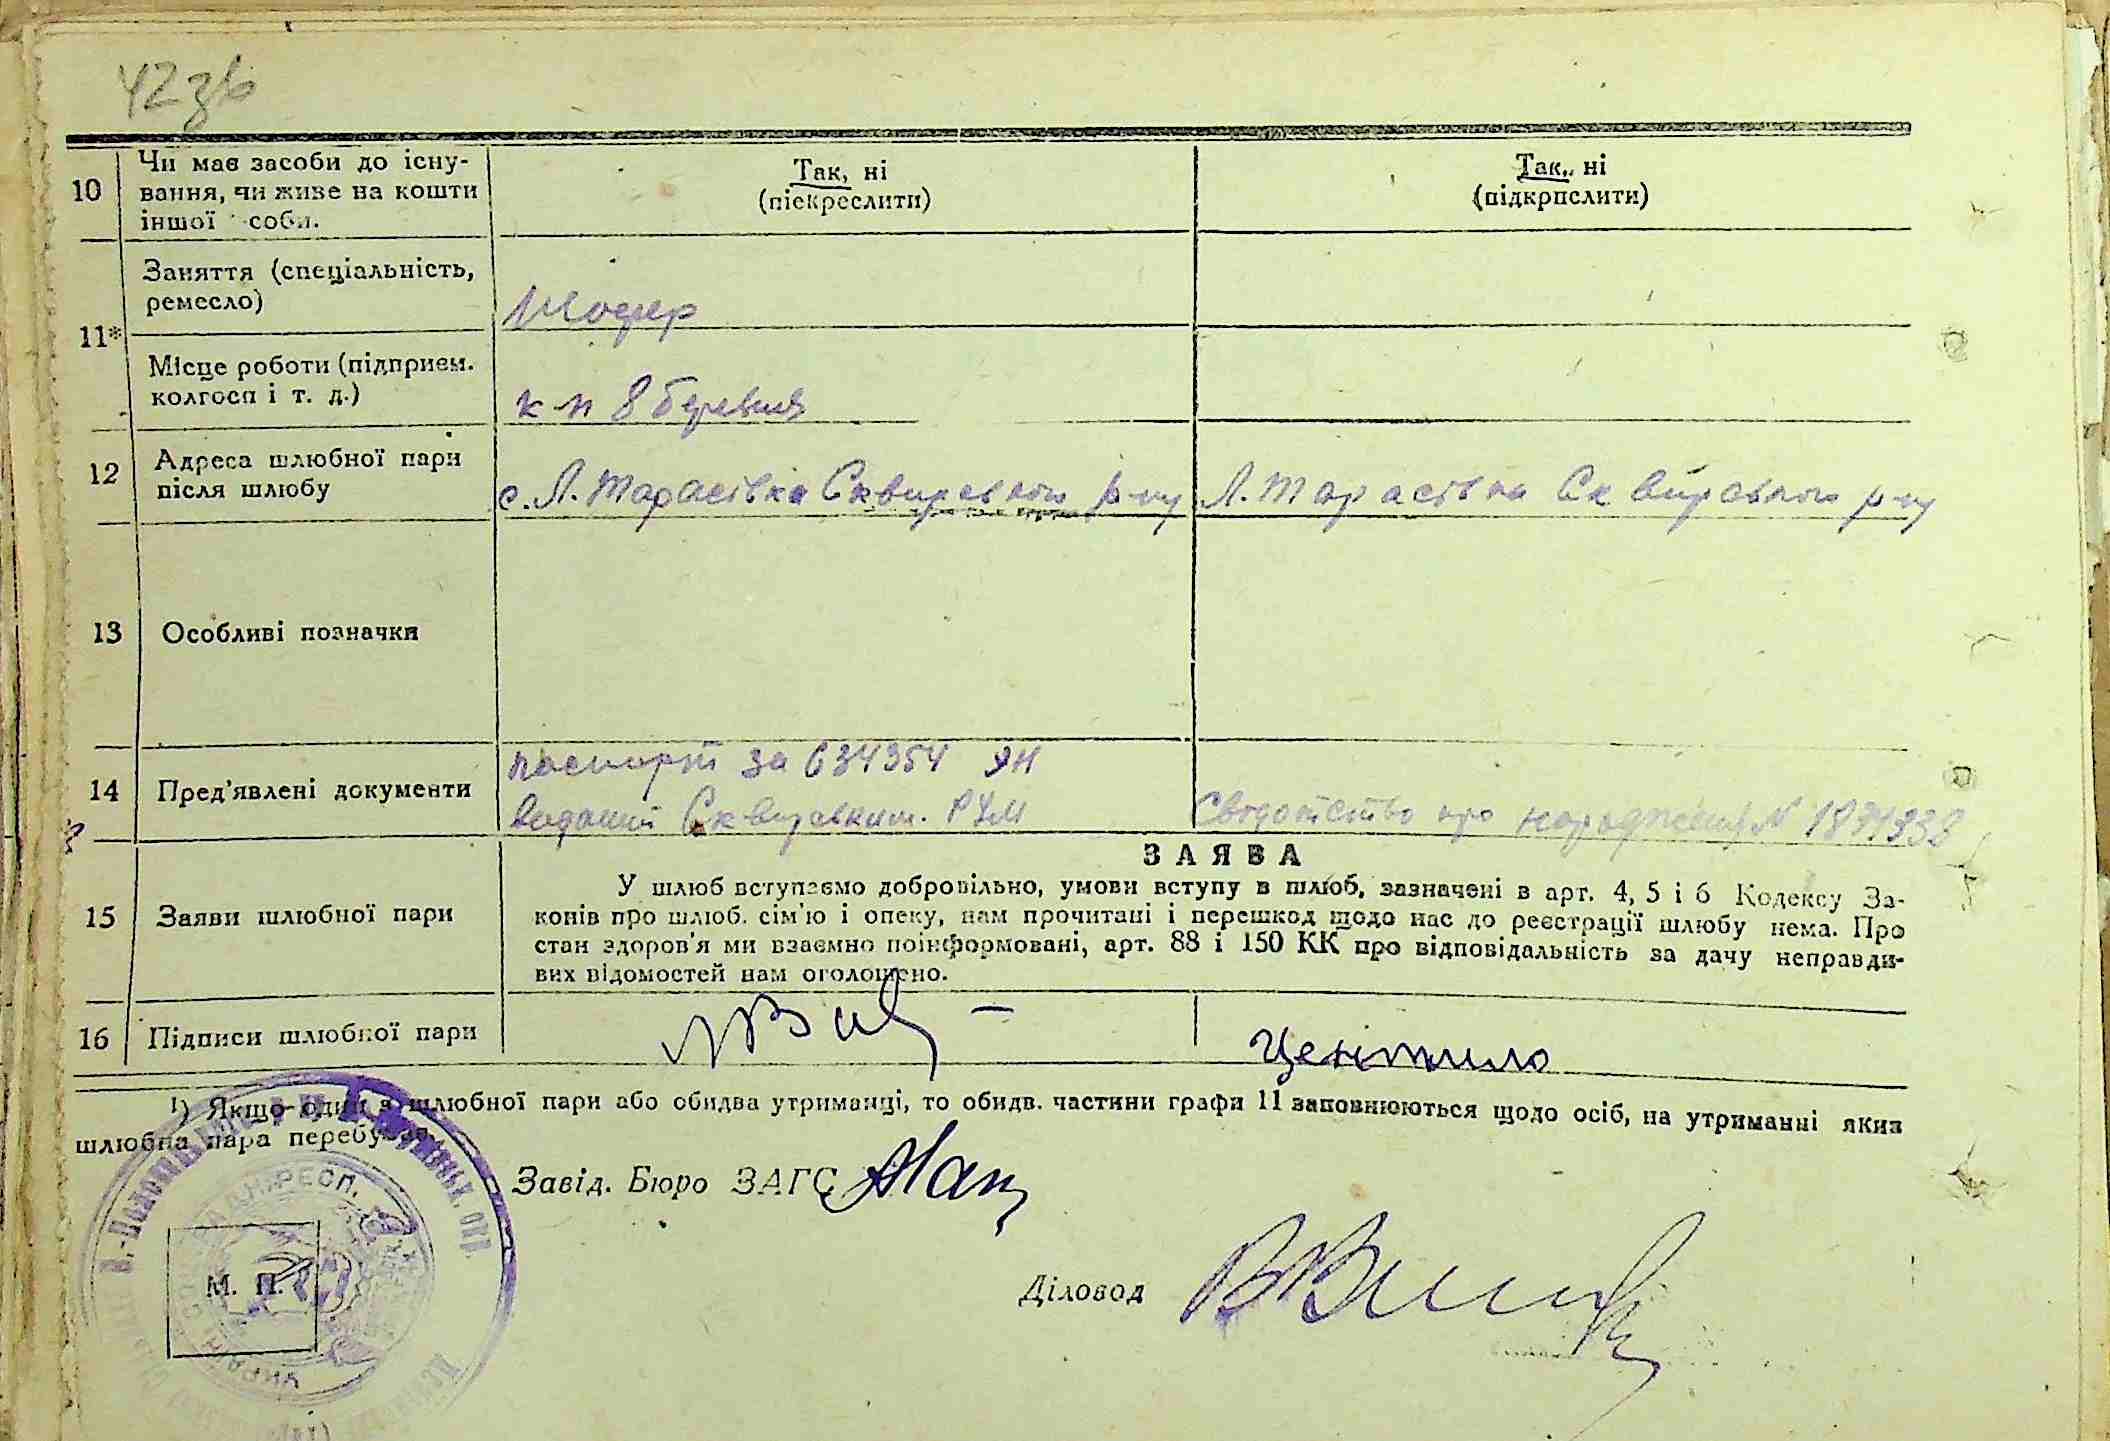 42 зв
10
Чи має засоби до існу-
вання, чи живе на кошти
іншої соби.
Так, ні
(піекреслити)
Так, ні
(підкрпслити)
11*
Заняття (спеціальність,
ремесло)
Шофер
Місце роботи (підприєм.
колгосп і т. д.)
к-п 8 березня
12
Адреса шлюбної пари
після шлюбу
с. Л. Тарасівка Сквирського р-ну
Л. Тарасівка Сквирського р-ну
13
Особливі позначки
14
Пред'явлені документи
паспорт за 634354
виданий Сквирським. РУМ
Свідотство про народження N
15
Заяви шлюбної пари
ЗАЯВА
У шлюб вступаємо добровільно, умови вступу в шлюб, зазначені в арт. 4, 5 і 6 Кодексу За-
конів про шлюб. сім'ю і опеку, нам прочитані і перешкод щодо нас до реєстрації шлюбу нема. Про
стан здоров'я ми взаємно поінформовані, арт. 88 і 150 КК про відповідальність за дачу неправди-
вих відомостей нам оголошено.
16
Підписи шлюбної пари
¹) Якщо один з шлюбної пари або обидва утриманці, то обидв. частини графи 11 заповнюються щодо осіб, на утриманні яких
шлюбна пара перебуває.
Завід. Бюро ЗАГС
М. П.
Діловод